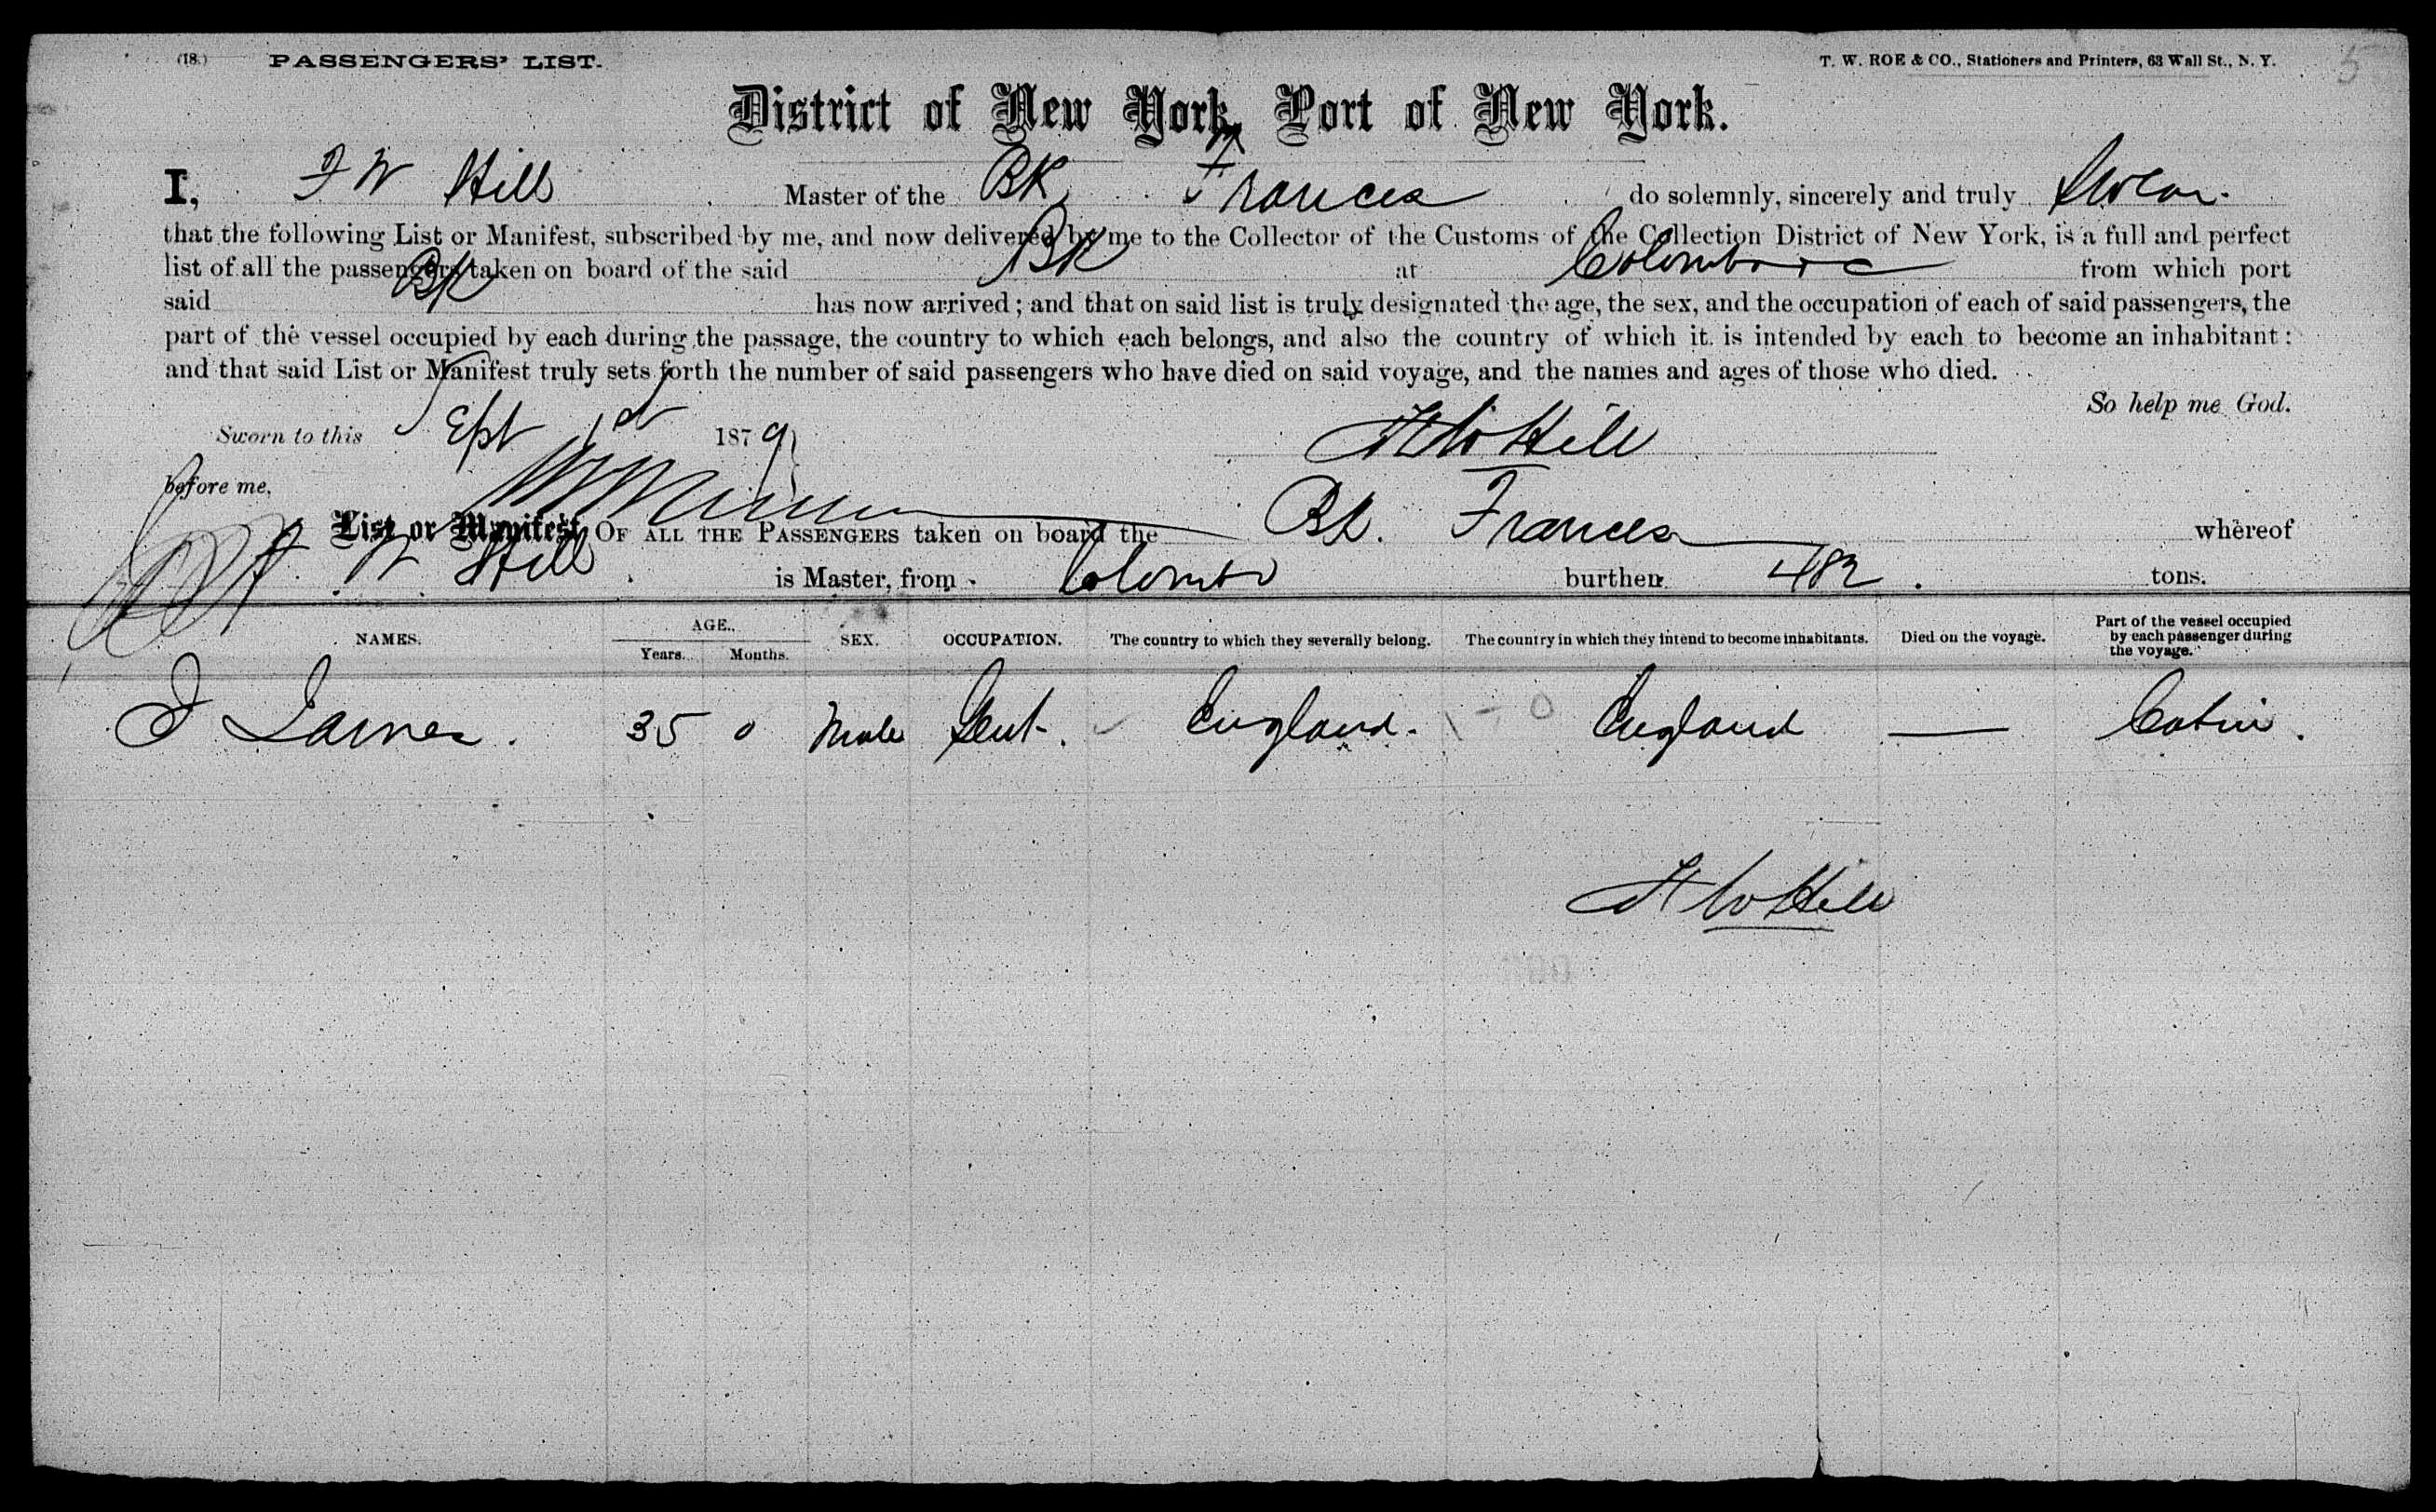 (18.) PASSENGERS' LIST. T. W. ROE & CO., Stationers and Printers, 63 Wall St., N. Y. 5
District of New York, Port of New York.
I, F W Hill Master of the BK Frances do solemnly, sincerely and truly Swear.
that the following List or Manifest, subscribed by me, and now delivered by me to the Collector of the Customs of the Collection District of New York, is a full and perfect
list of all the passengers taken on board of the said BK at Colombo from which port
said BK has now arrived; and that on said list is truly designated the age, the sex, and the occupation of each of said passengers, the
part of the vessel occupied by each during the passage, the country to which each belongs, and also the country of which it is intended by each to become an inhabitant:
and that said List or Manifest truly sets forth the number of said passengers who have died on said voyage, and the names and ages of those who died.
So help me God.
Sworn to this Sept 1st 1879 F W Hill
before me,
List or Manifest OF ALL THE PASSENGERS taken on board the Bk. Frances whereof
F. W Hill is Master, from Colombo burthen 482. tons.
NAMES. AGE. Years. Months. SEX. OCCUPATION. The country to which they severally belong. The country in which they intend to become inhabitants. Died on the voyage. Part of the vessel occupied by each passenger during the voyage.
35 0 Male Gent. England. England — Cabin.
F W Hill